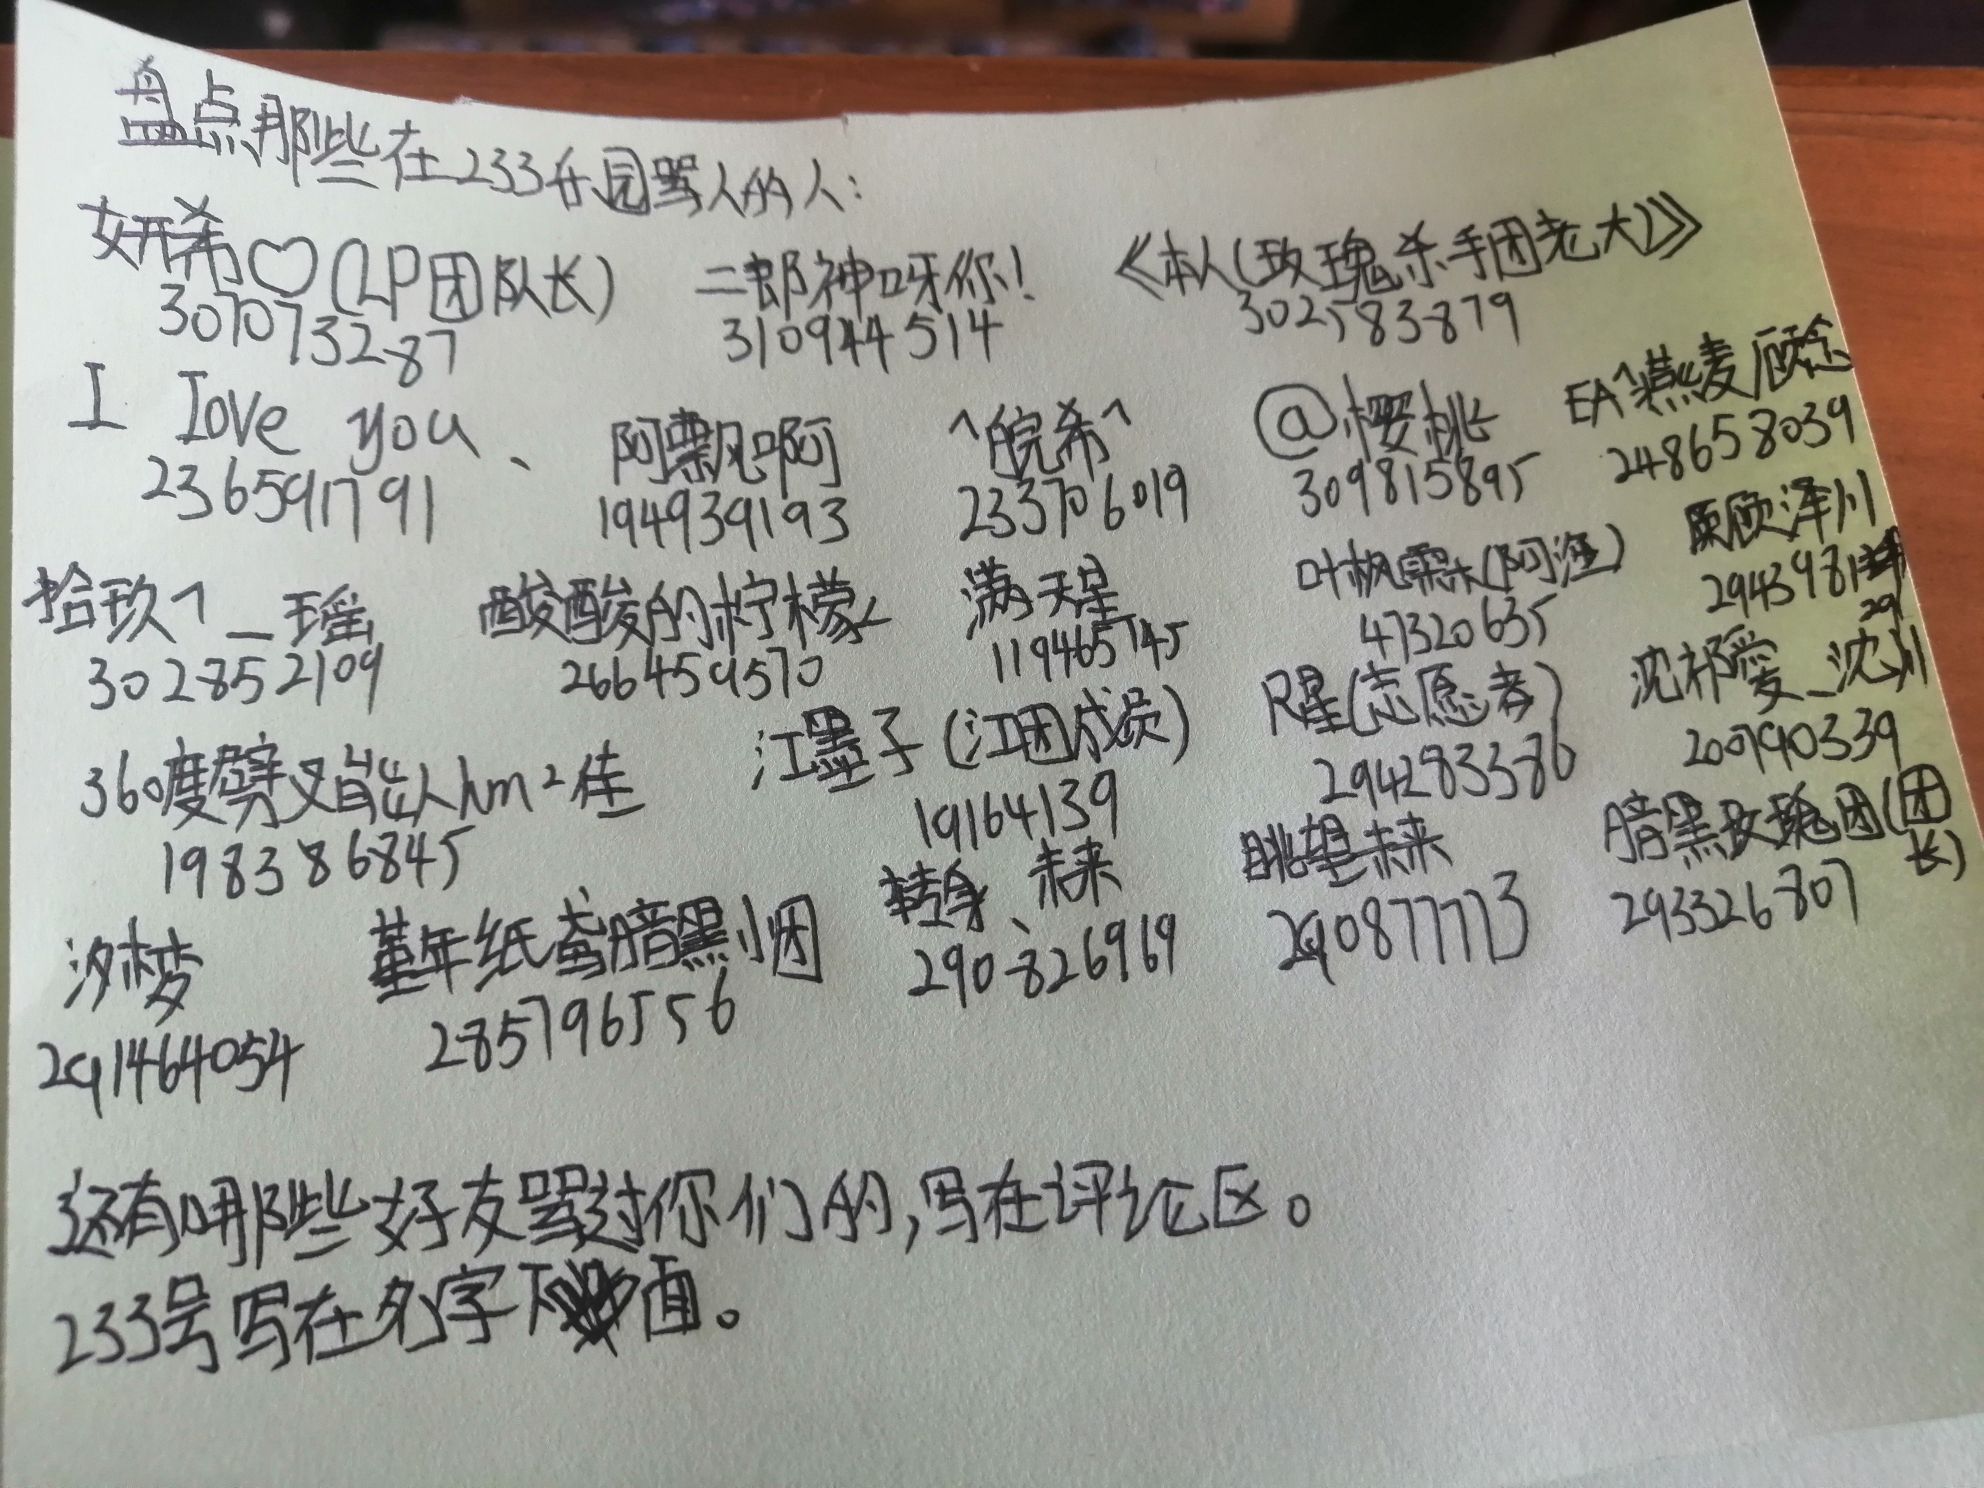 盘点那些在233乐园骂人的人:
妍希♡(LP团队长) 二郎神呀你! 《本人(玫瑰杀手团老大)》
307073287 310944514 302583879
I Iove you、 阿飘啊 ^皖希^ @樱桃 EA^燕麦顾念
236591791 194939193 233706019 309815895 248658039
拾玖^_瑶 酸酸的柠檬 满天星 叶枫霖(阿涯) 顾泽川
302852109 266459570 119465745 47320635 2943981
29
360度劈叉能人hm²佳 江墨子(江团成员) R星(志愿者) 沈祁爱_沈川
198386845 19164139 294283386 200790339
汐梦 堇年纸鸢暗黑小团 转身、未来 眺望未来 暗黑玫瑰团(团长)
291464054 285796556 290826969 290877773 293326807
还有哪些好友骂过你们的,写在评论区。
233号写在名字下面。